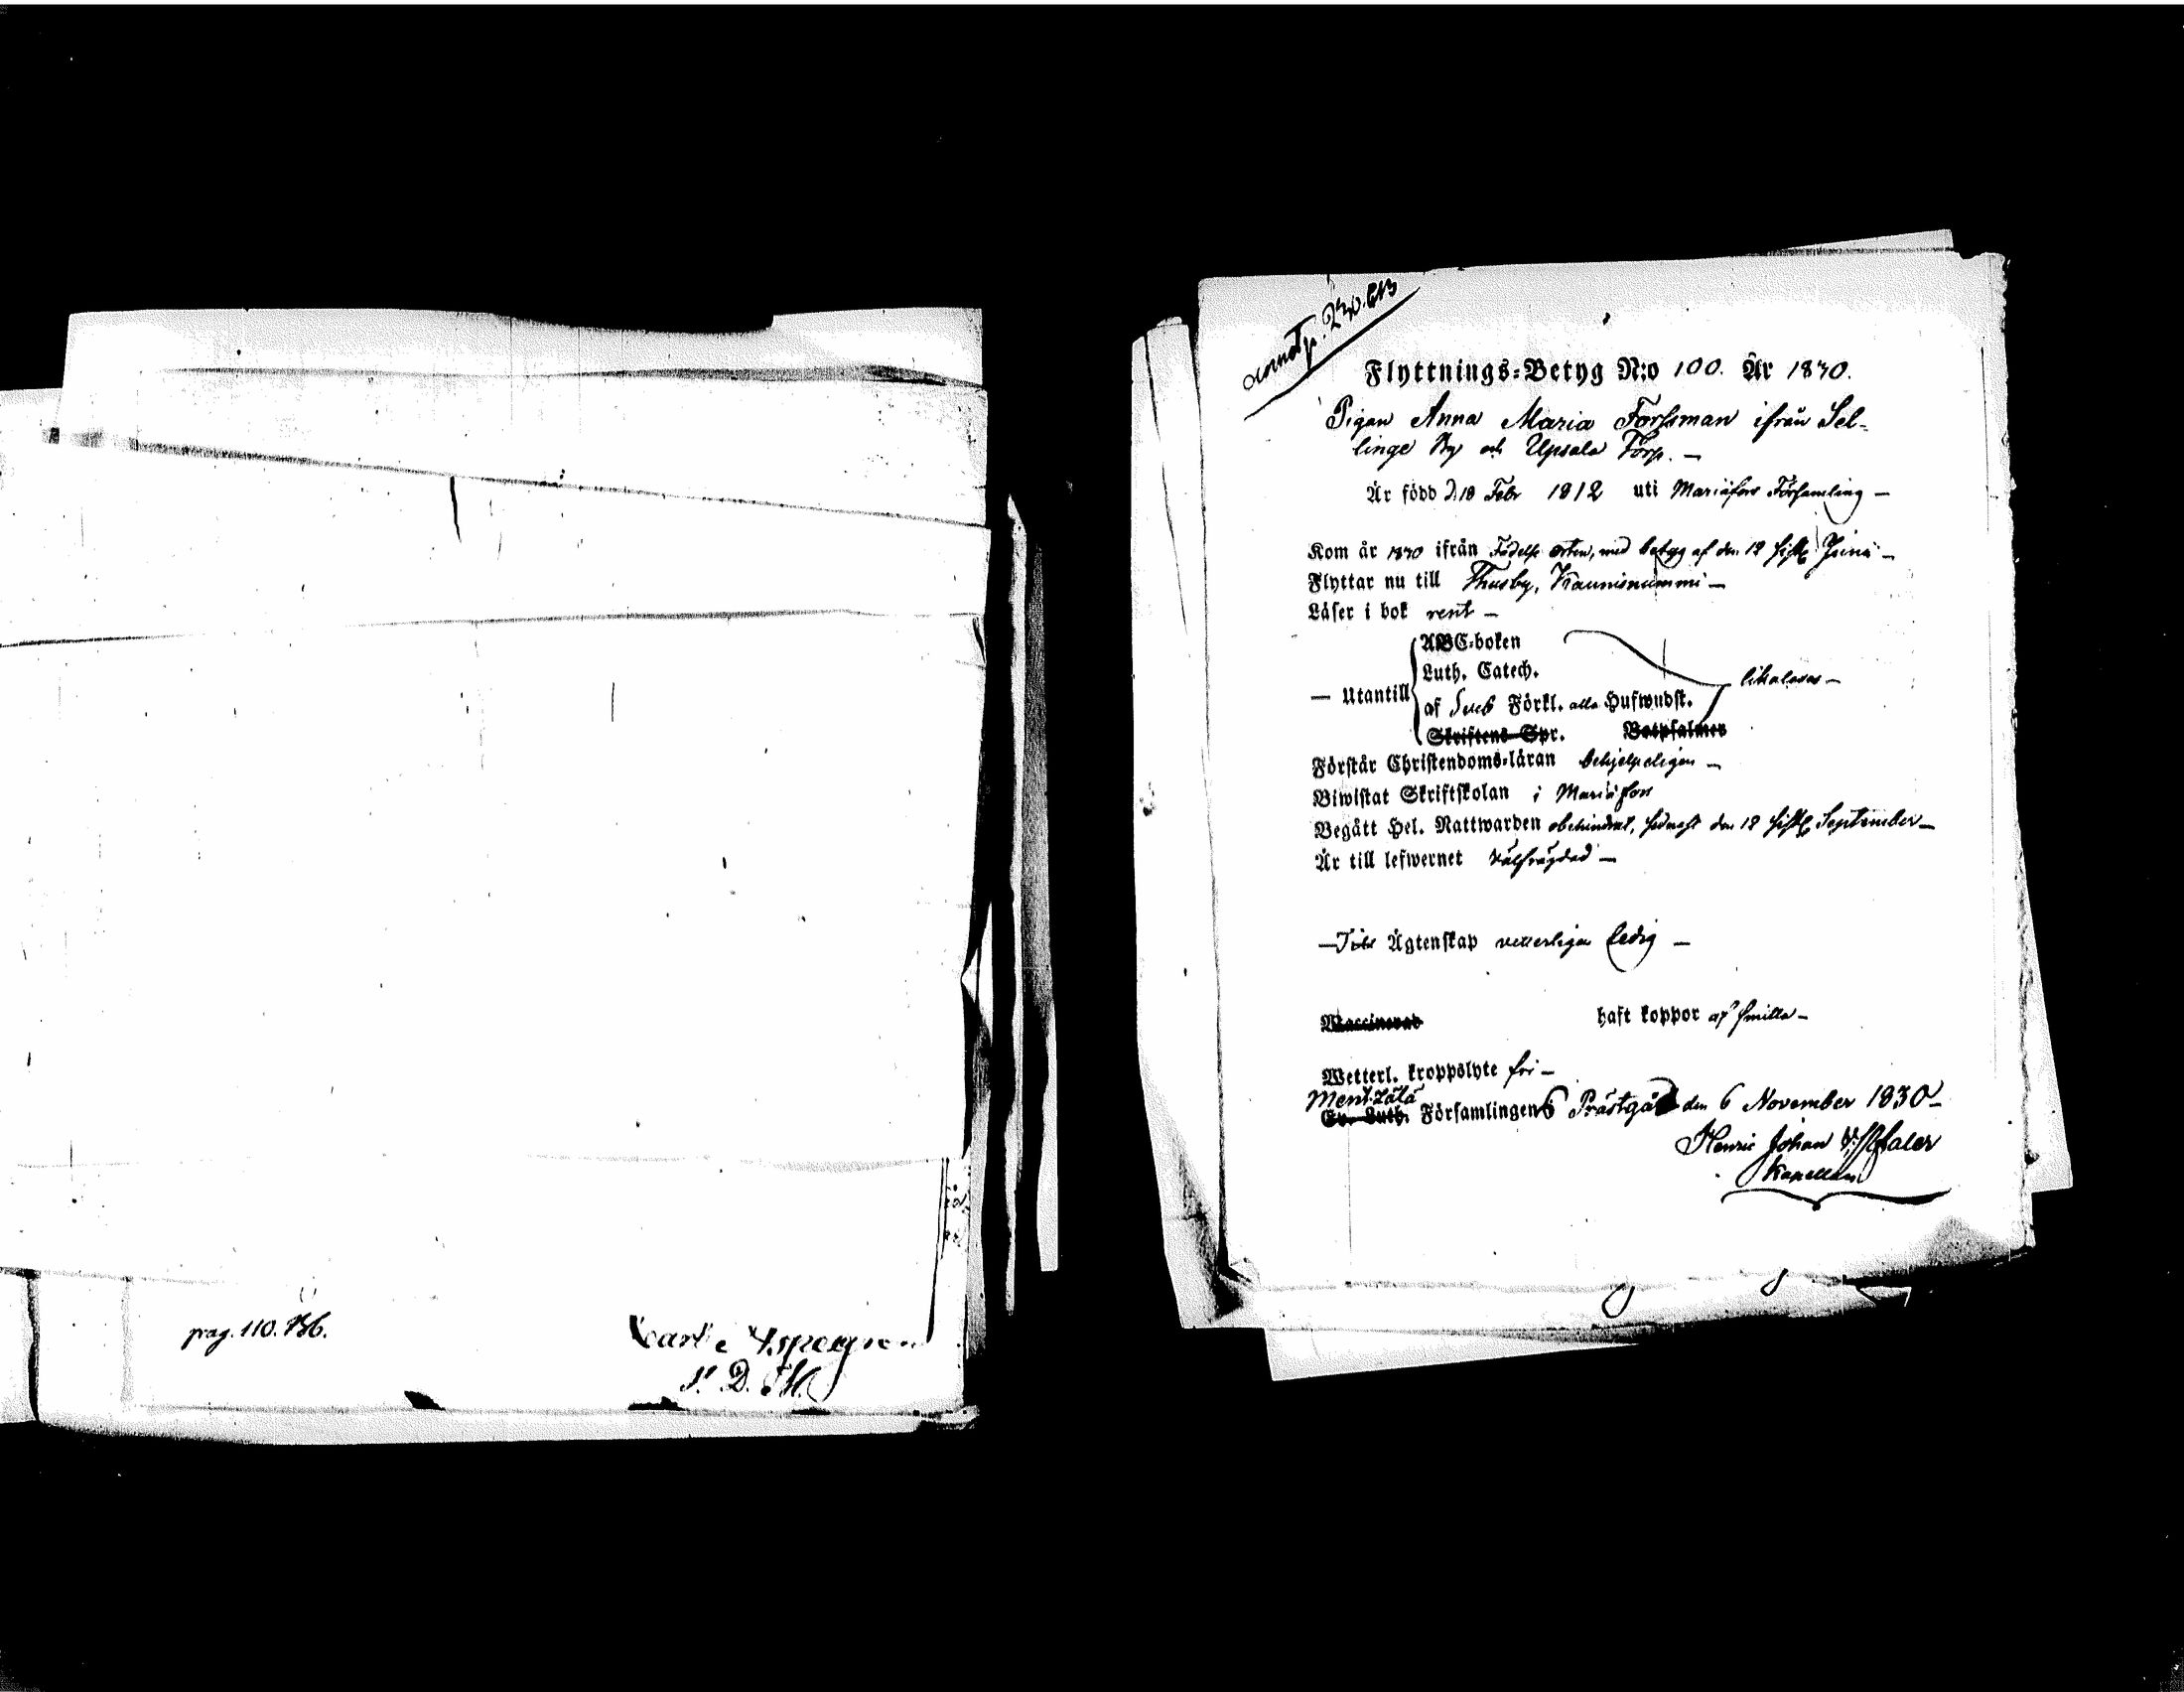 pag. 110. 136.
annot p. 230.
Flyttnings-Betyg N:o 100. År 1830.
Pigan Anna Maria Forssman ifrån Sel-
linge By och Upsala Torp. —
Är född d. 18 Febr 1812 uti Mariæfors Församling —
Kom år 1830 ifrån Födelse orten, med betyg af den 12 sistl. Junii —
Flyttar nu till Thusby, Kaunisnummi —
Läser i bok rent —
— Utantill
ABC-boken
Luth. Catech.
af Sveb Förkl. alla Hufwudst.
likaledes —
Skriftens Spr. Botpsalmer
Förstår Christendoms-läran behjelpeligen —
Biwistat Skriftskolan i Mariæfors
Begått Hel. Nattwarden obehindrat, sednast den 12 sistl. September —
Är till lefwernet välfrägdad —
— Till Ägtenskap vetterligen ledig —
Waccinerad haft koppor af smitta —
Wetterl. kroppslyte fri —
Mentzälä
Ev. Luth. Församlingens Prästgård den 6 November 1830 —
Henric Johan
Kapellan